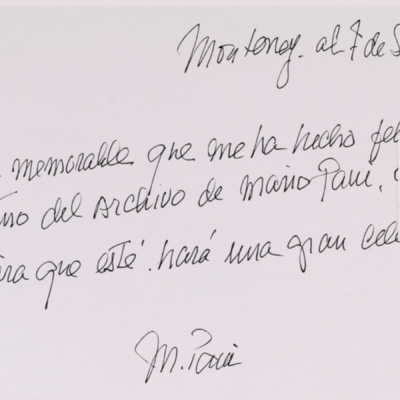 Monterrey. al 7 de S
memorable que me ha hecho fel
del Archivo de Mario Pani,
que esté. hará una gran cele
M. Pani